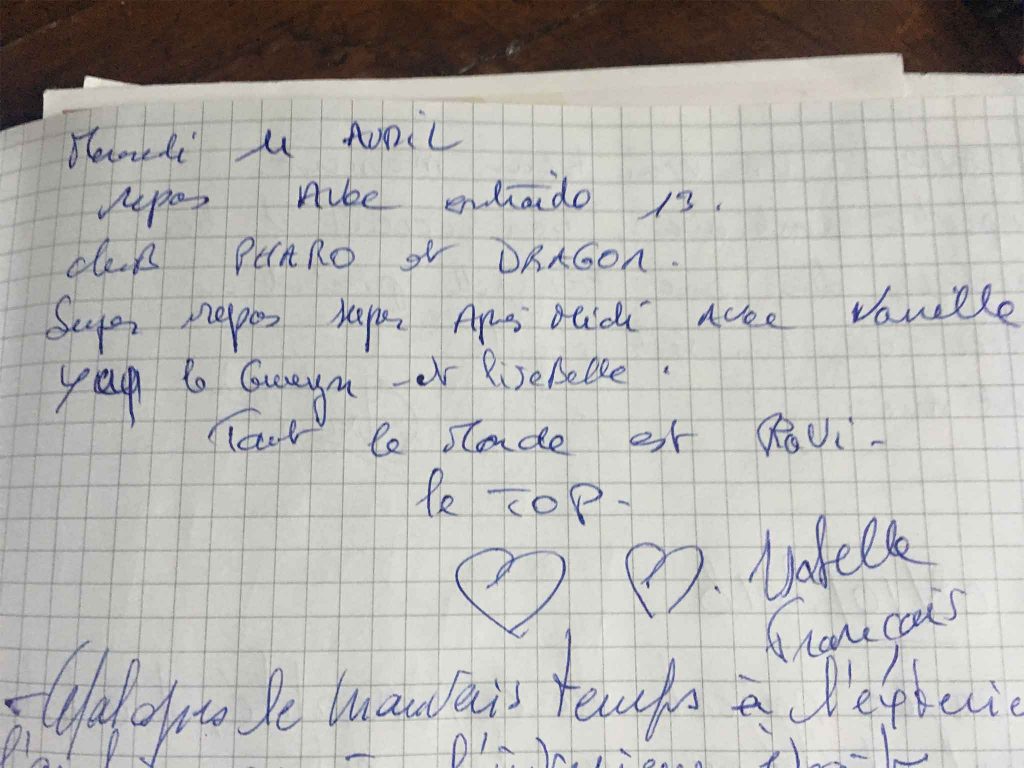 Mardi 11 AVRIL
repas Avec entraide 13.
cluB PHARO et DRAGON.
Super repas super Après Midi Avec Vanille
le et lisaBelle.
Tout le Monde est RaVi -
le TOP -
Français
- Malgrès le mauvais temps à l'éxterie
l'